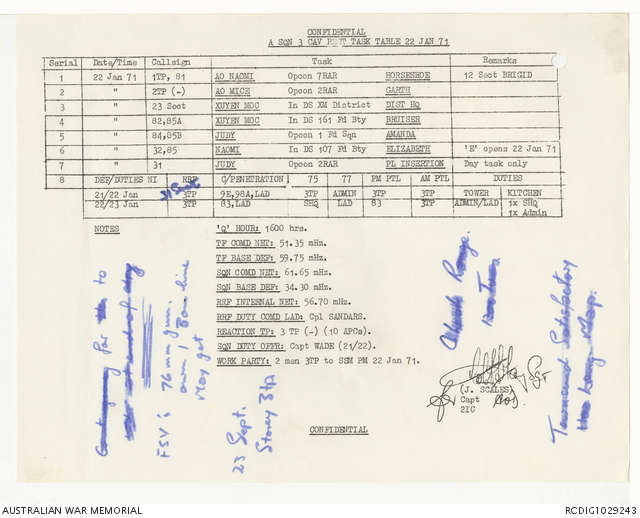 CONFIDENTIAL
A SQN 3 CAV REGT TASK TABLE 22 JAN 71
Serial Date/Time Callsign Task Remarks
1 22 Jan 71 1TP, 81 AO NAOMI Opcon 7RAR HORSEHOE 12 Sect BRIGID
2 " 2TP (-) AO MICE Opcon 2RAR GARTH
3 " 23 Sect XUYEN MOC In DS XM District DIST HQ
4 " 82,85A XUYEN MOC In DS 161 Fd Bty BRUISER
5 " 84,85B JUDY Opcon 1 Fd Sqn AMANDA
6 " 32,85 NAOMI In DS 107 Fd Bty ELIZABETH 'E' opens 22 Jan 71
7 " 31 JUDY Opcon 2RAR PL INSERTION Day task only
8 DEF/DUTIES NI RRF C/PENETRATION 75 77 PM PTL AM PTL DUTIES
21/22 Jan 3TP 9E,98A,LAD 3TP ADMIN 3TP 3TP TOWER KITCHEN
22/23 Jan 3TP 83,LAD SHQ LAD 83 3TP ADMIN/LAD 1x SHQ
1x Admin
NOTES
'Q' HOUR: 1600 hrs.
TF COMD NET: 51.35 mHz.
TF BASE DEF: 59.75 mHz.
SQN COMD NET: 61.65 mHz.
SQN BASE DEF: 34.30 mHz.
RRF INTERNAL NET: 56.70 mHz.
RRF DUTY COMD LAD: Cpl SANDARS.
REACTION TP: 3 TP (-) (10 APCs).
SQN DUTY OFFR: Capt WADE (21/22).
WORK PARTY: 2 men 3TP to SSM PM 22 Jan 71.
for to
FSV's 76mm gun.
own / 80
May get
23 Sept.
Storey 3tp
Range.
Satisfactory
(J. SCALES)
Capt
2IC
CONFIDENTIAL
AUSTRALIAN WAR MEMORIAL
RCDIG1029243